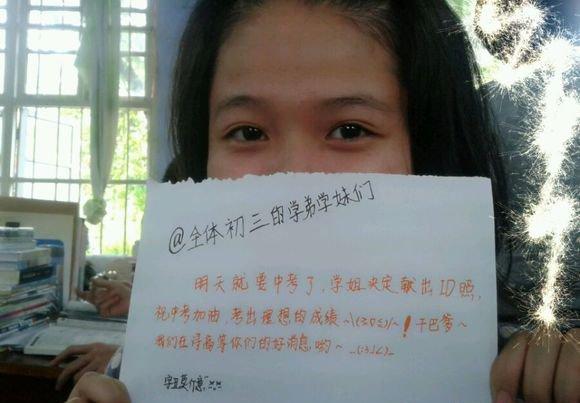 @全体初三的学弟学妹们
明天就要中考了，学姐决定献出ID照，
祝中考加油，考出理想的成绩~\(≧▽≦)/~！干巴爹~
我们在浔高等你们的好消息，哟~ _(:з」∠)_
字丑莫介意